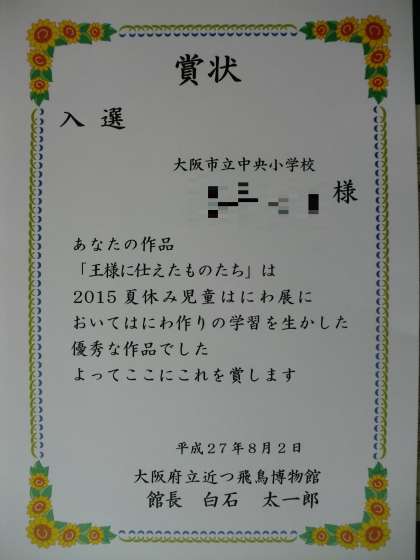 賞状
入選
大阪市立中央小学校
様
あなたの作品
「王様に仕えたものたち」は
2015夏休み児童はにわ展に
おいてはにわ作りの学習を生かした
優秀な作品でした
よってここにこれを賞します
平成27年8月2日
大阪府立近つ飛鳥博物館
館長 白石 太一郎